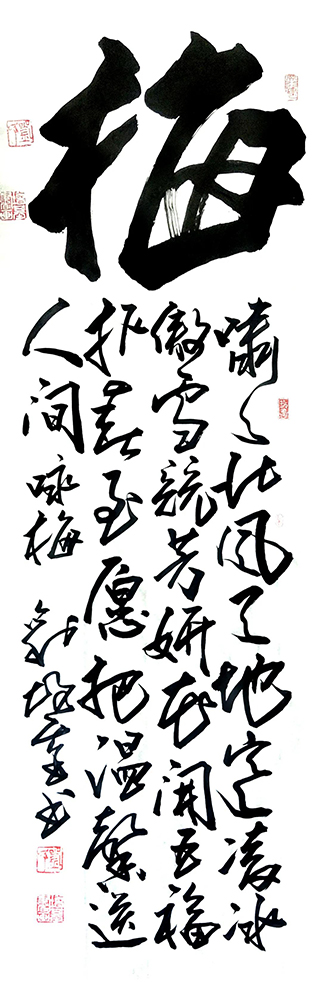 梅
啸々北风天地寒凌冰
傲雪竞芳妍花开五福
报春至愿把温馨送
人间 咏梅 书